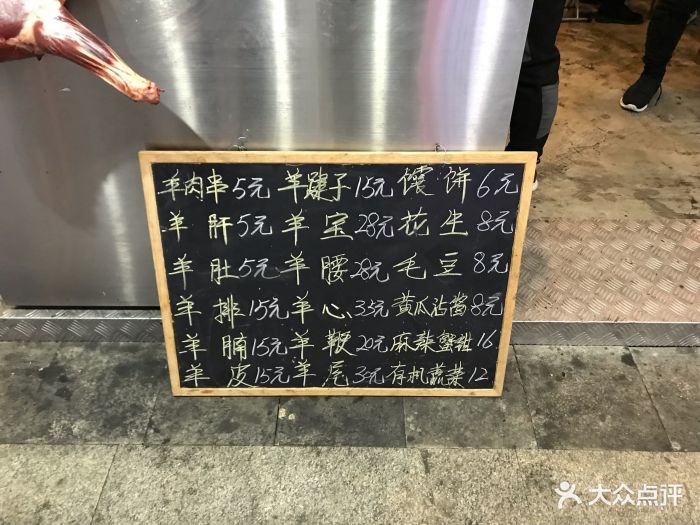 羊肉串5元 羊腱子15元 馕饼6元
羊肝5元 羊宝28元 花生8元
羊肚5元 羊腰28元 毛豆8元
羊排15元 羊心35元 黄瓜沾酱8元
羊腩15元 羊鞭20元 麻辣蟹钳16
羊皮15元 羊尾30元 有机蔬菜12
大众点评